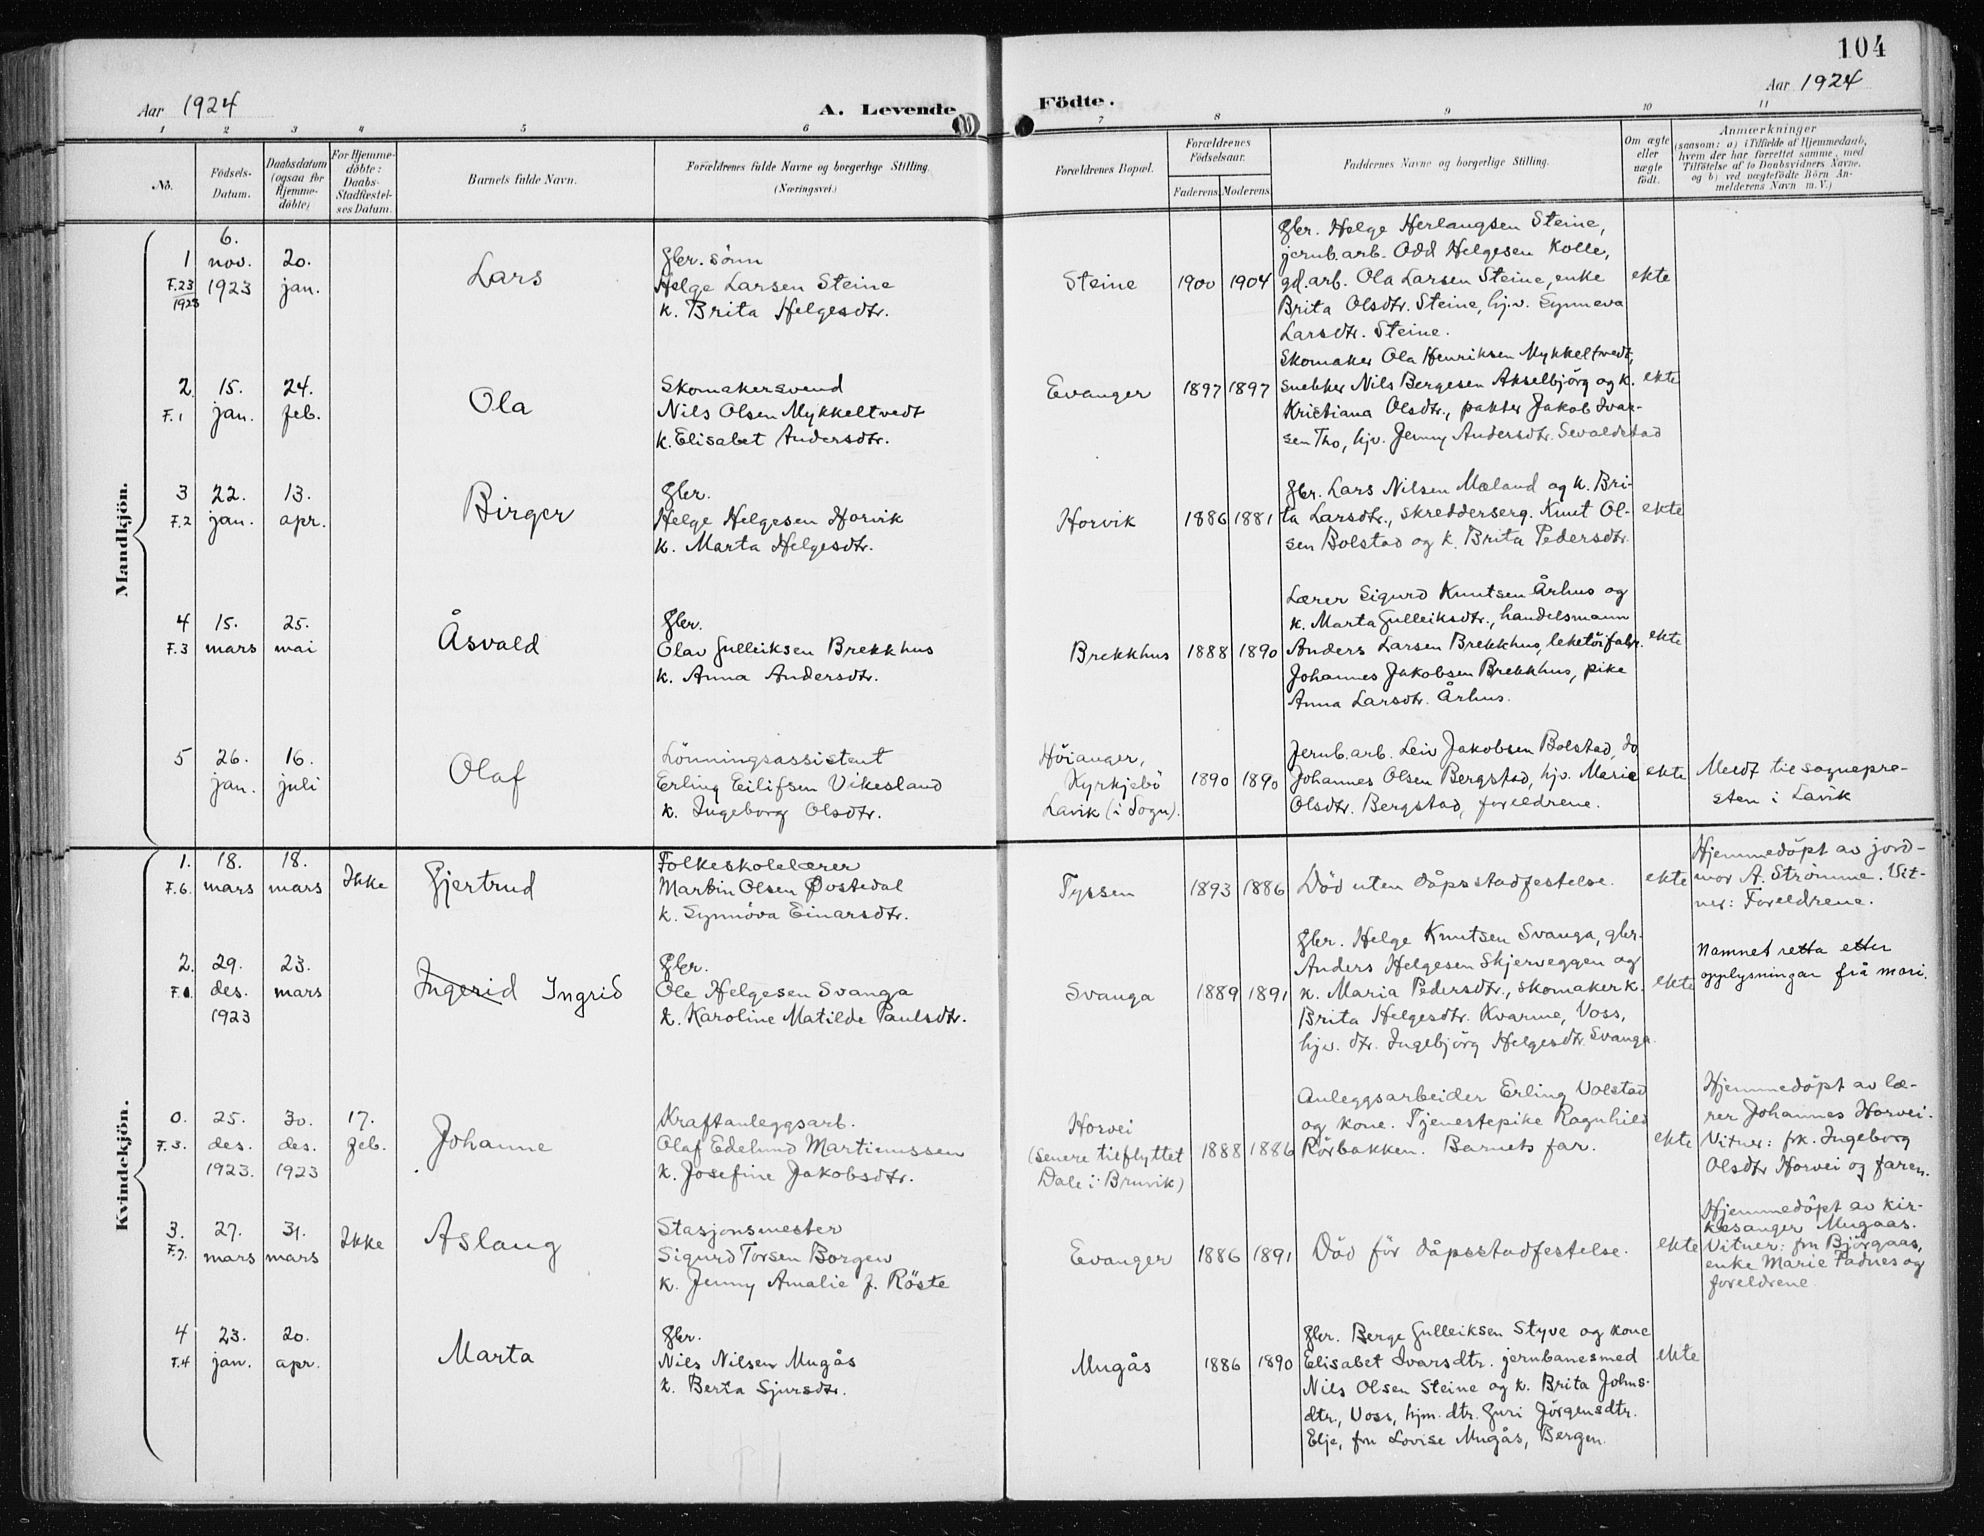 104
Aar 1924
A. Levende
Födte.
Aar 1924
1 2 3 4 5 6 7 8 9 10 11
No.
Födsels-
Datum.
Daabsdatum
(ogsaa for
Hjemme-
döbte)
For Hjemme-
döbte:
Daabs-
Stadfæstel-
ses Datum.
Barnets fulde Navn.
Forældrenes fulde Navne og borgerlige Stilling.
(Næringsvei.)
Forældrenes Bopæl.
Forældrenes
Födselsaar.
Faderens. Moderens.
Faddernes Navne og borgerlige Stilling.
Om ægte
eller
uægte
födt.
Anmærkninger
(saasom: a) i Tilfælde af Hjemmedaab,
hvem der har forrettet samme, med
Tilföielse af to Daabsvidners Navne,
og b) ved uægtefödte Börn An-
melderens Navn m. V.)
Mandkjön.
1
F.23
1923
6.
nov.
1923
20.
jan.
Lars
Gbr. sönn
Helge Larsen Steine
k. Brita Helgesdtr.
Steine
1900 1904
Gbr. Helge Herlaugsen Steine,
jernb.arb. Odd Helgesen Kolle,
gd.arb. Ola Larsen Steine, enke
Brita Olsdtr. Steine, hjv. Synneva
Larsdtr. Steine.
ekte
2.
F.1
15.
jan.
24.
feb.
Ola
Skomakersvend
Nils Olsen Mykkeltvedt
k. Elisabet Andersdtr.
Evanger
1897 1897
Skomaker Ola Henriksen Mykkeltvedt,
snekker Nils Bergesen Akselbjörg og k.
Kristiana Olsdtr., pakter Jakob Ivar-
sen Tho, hjv. Jenny Andersdtr. Sevaldstad
ekte
3
F.2
22.
jan.
13.
apr.
Birger
Gbr.
Helge Helgesen Horvik
k. Marta Helgesdtr.
Horvik
1886 1881
Gbr. Lars Nilsen Mæland og k. Bri-
ta Larsdtr., skredderserg. Knut Ol-
sen Bolstad og k. Brita Pedersdtr.
ekte
4
F.3
15.
mars
25.
mai
Åsvald
Gbr.
Olav Gulleiksen Brekkhus
k. Anna Andersdtr.
Brekkhus
1888 1890
Lærer Sigurd Knutsen Århus og
k. Marta Gulleiksdtr., handelsmann
Anders Larsen Brekkhus, leketöifabr.
Johannes Jakobsen Brekkhus, pike
Anna Larsdtr. Århus.
ekte
5
26.
jan.
16.
juli
Olaf
Lönningsassistent
Erling Eilifsen Vikesland
k. Ingeborg Olsdtr.
Höianger,
Kyrkjebö
Lavik (i Sogn).
1890 1890
Jernb.arb. Leiv Jakobsen Bolstad, do
Johannes Olsen Bergstad, hjv. Marie
Olsdtr. Bergstad, foreldrene.
ekte
Meldt til sognepre-
sten i Lavik
Kvindekjön.
1.
F.6.
18.
mars
18.
mars
Ikke
Gjertrud
Folkeskolelærer
Martin Olsen Øvstedal
k. Synnöva Einarsdtr.
Tyssen
1893 1886
Död uten dåpsstadfestelse.
ekte
Hjemmedöpt av jord-
mor A. Strømme. Vit-
ner: Foreldrene.
2.
29.
des.
1923
23.
mars
Ingerid Ingrid
Gbr.
Ole Helgesen Svanga
k. Karoline Matilde Paulsdtr.
Svanga
1889 1891
Gbr. Helge Knutsen Svanga, gbr.
Anders Helgesen Skjerveggen og
k. Maria Pedersdtr., skomaker k.
Brita Helgesdtr. Kvarme, Voss,
hjv. dtr. Ingebjörg Helgesdtr. Svanga.
ekte
Namnet retta etter
opplysningar frå mori.
0.
F.3.
25.
des.
1923.
30.
des.
1923
17.
feb.
Johanne
Kraftanleggsarb.
Olaf Edelund Martinussen
k. Josefine Jakobsdtr.
Horvei
(senere tilflyttet
Dale i Bruvik)
1888 1886
Anleggsarbeider Erling Volstad
og kone. Tjenestepike Ragnhild
Rörbakken. Barnets far.
ekte
Hjemmedöpt av læ-
rer Johannes Horvei.
Vitner: frk. Ingeborg
Olsdtr Horvei og faren.
3.
F.7.
27.
mars
31.
mars
Ikke
Aslaug
Stasjonsmester
Sigurd Torsen Borgen
k. Jenny Amalie f. Röste
Evanger
1886 1891
Död för dåpsstadfestelse.
ekte
Hjemmedöpt av kir-
kesanger Mugaas.
Vitner: fru Bjørgaas,
enke Marie Fadnes og
foreldrene.
4
F.4
23.
jan.
20.
apr.
Marta
Gbr.
Nils Nilsen Mugås
k. Berta Sjursdtr.
Mugås
1886 1890
Gbr. Berge Gulleiksen Styve og kone
Elisabet Ivarsdtr. jernbanesmed
Nils Olsen Steine og k. Brita Johns-
dtr., Voss, hjm. dtr. Guri Jörgensdtr.
Elje, fru Lovise Mugås, Bergen.
ekte